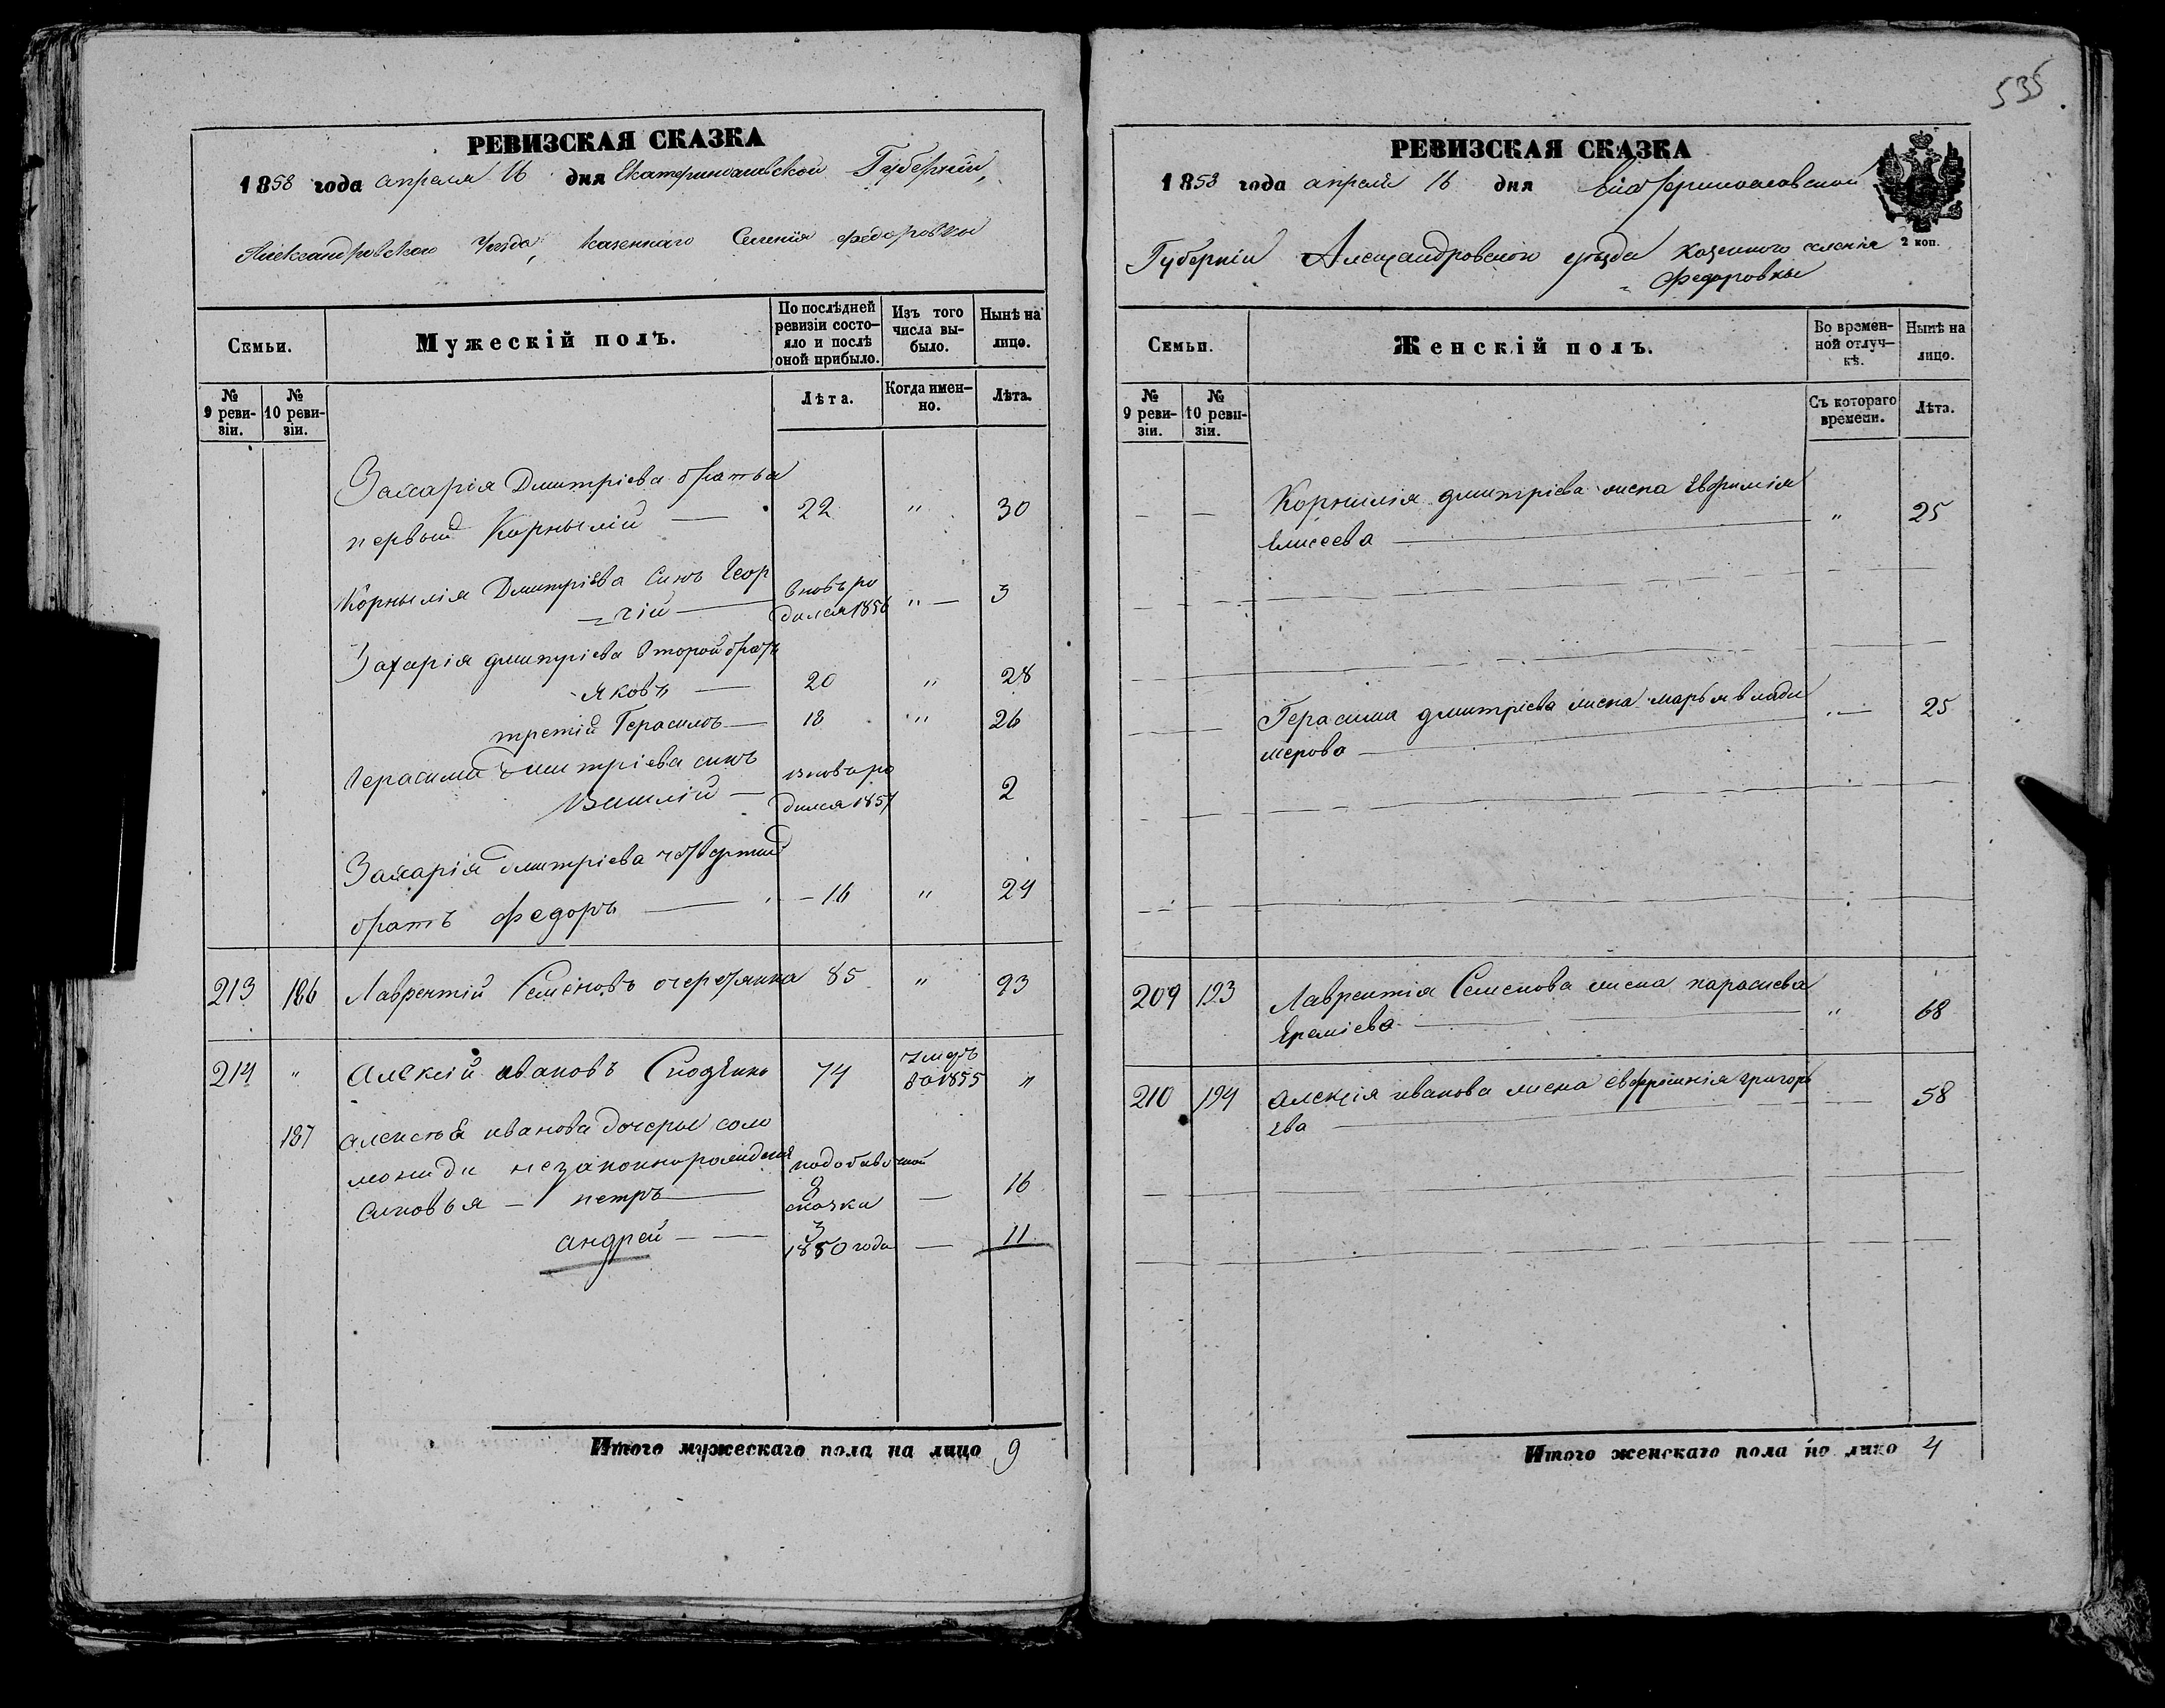 535
РЕВИЗСКАЯ СКАЗКА
1858 года апреля 16 дня Екатеринославской Губерніи,
Александровскаго Уезда, казеннаго Селенія Федоровки
Семьи.
Мужескій полъ.
По послѣдней ревизіи состо-яло и послѣ оной прибыло.
Изъ того числа вы-было.
Нынѣ на лицо.
№ 9 реви-зіи.
№ 10 реви-зіи.
Лѣта.
Когда имен-но.
Лѣта.
Захарія Дмитріева братья
первый Корнылій — 22 " 30
Корнылія Дмитріева синъ Геор вновъ ро
гій — дился 1856 " — 3
Захарія дмитріева второй братъ
яковъ — 20 " 28
третій Герасимъ — 18 " 26
Герасима дмитріева синъ вновъ ро
Василій — дился 1857 2
Захарія дмитріева четвертий
братъ Федоръ — 16 " 24
213 186 Лаврентій Семеновъ 85 " 93
214 " Алексій ивановъ 74 умеръ
въ 1855 "
187 алексея иванова дочеры соло
мониди незаконнорожденія подобавочной
синовья — петръ — 8 сказки — 16
андрей — — 3 1850 года — 11
Итого мужескаго пола на лицо 9
РЕВИЗСКАЯ СКАЗКА
1858 года апреля 16 дня Екатеринославской
Губерніи Александровскаго уезда казенного селенія
Федоровки
2 коп.
Семьи.
Женскій полъ.
Во времен-ной отлуч-кѣ.
Нынѣ на лицо.
№ 9 реви-зіи.
№ 10 реви-зіи.
Съ котораго времени.
Лѣта.
— — Корнилія дмитріева жена Евфимія
Елисеева — " 25
Герасима дмитріева жена марья влади — 25
мерова —
209 193 Лаврентія Семенова жена параскева
Ереміева — " 68
210 194 алексія иванова жена евфросинія григорь — 58
ева —
Итого женскаго пола на лицо 4